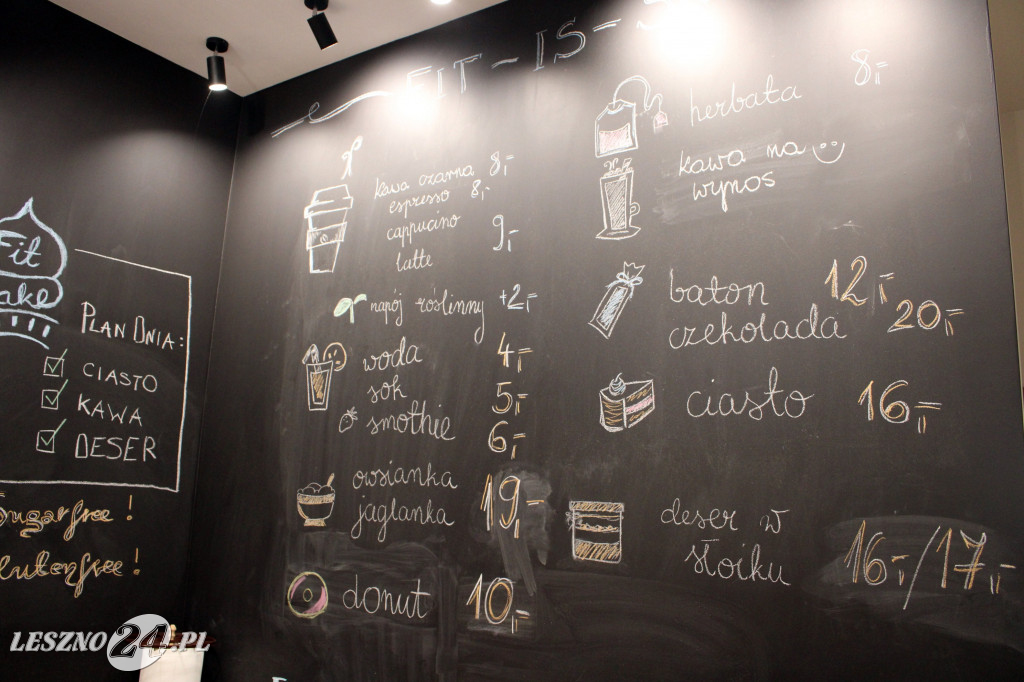 FIT-IS-
Fit
ake
PLAN DNIA:
CIASTO
KAWA
DESER
Sugarfree!
lutenfree!
kawa czarna 8,-
espresso 8,-
cappucino
latte 9,-
napój roślinny +2,-
woda 4,-
sok 5,-
smothie 6,-
owsianka
jaglanka 19,-
donut 10,-
herbata 8,-
kawa na
wynos
baton 12,-
czekolada 20,-
ciasto 16,-
deser w
słoiku 16,-/17,-
LESZNO24.PL